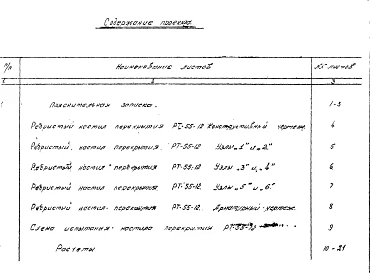 Содержание проекта
п/п Наименование листов №№ листов
1 2 3
Пояснительная записка. 1-3
Ребристый настил перекрытия РТ-55-12 Конструктивный чертеж 4
Ребристый настил перекрытия РТ-55-12 Узлы „1" и „2" 5
Ребристый настил перекрытия РТ-55-12 Узлы „3" и „4" 6
Ребристый настил перекрытия РТ-55-12 Узлы „5" и „6" 7
Ребристый настил перекрытия РТ-55-12. Арматурный чертеж 8
Схема испытания настила перекрытия РТ-55-12 9
Расчеты 10-21